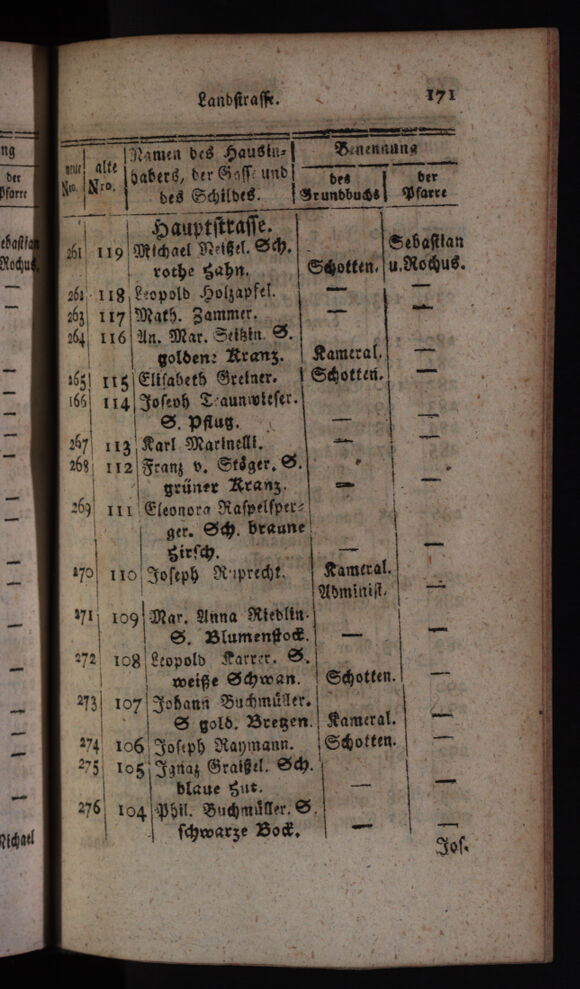 Landstrasse. 171
neue Nro. | alte Nro. | Namen des Hausin- | Benennung
habers, der Gasse und | des | der
des Schildes. | Grundbuchs | Pfarre
Hauptstrasse.
261 119 Michael Neißel. Sch. Sebastian
rothe Hahn. Schotten. u. Rochus.
262 118 Leopold Holzapfel. — —
263 117 Math. Zammer. — —
264 116 An. Mar. Seitzin. S.
goldene Kranz. Kameral. —
265 115 Elisabeth Greiner. Schotten. —
166 114 Joseph Traunwieser.
S. Pflug. — —
267 113 Karl Marinelli. — —
268 112 Franz v. Stöger. S.
grüner Kranz. — —
269 111 Eleonora Raspelsper-
ger. Sch. braune
Hirsch. — —
270 110 Joseph Ruprecht. Kameral.
Administ. —
271 109 Mar. Anna Riedlin.
S. Blumenstock. — —
272 108 Leopold Karrer. S.
weiße Schwan. Schotten. —
273 107 Johann Buchmüller.
S gold. Bretzen. Kameral. —
274 106 Joseph Raymann. Schotten. —
275 105 Ignaz Graißel. Sch.
blaue Hut. — —
276 104 Phil. Buchmüller. S.
schwarze Bock. — —
Jos.
ng
der
Pfarre
ebastian
Rochus.
—
—
—
Michael